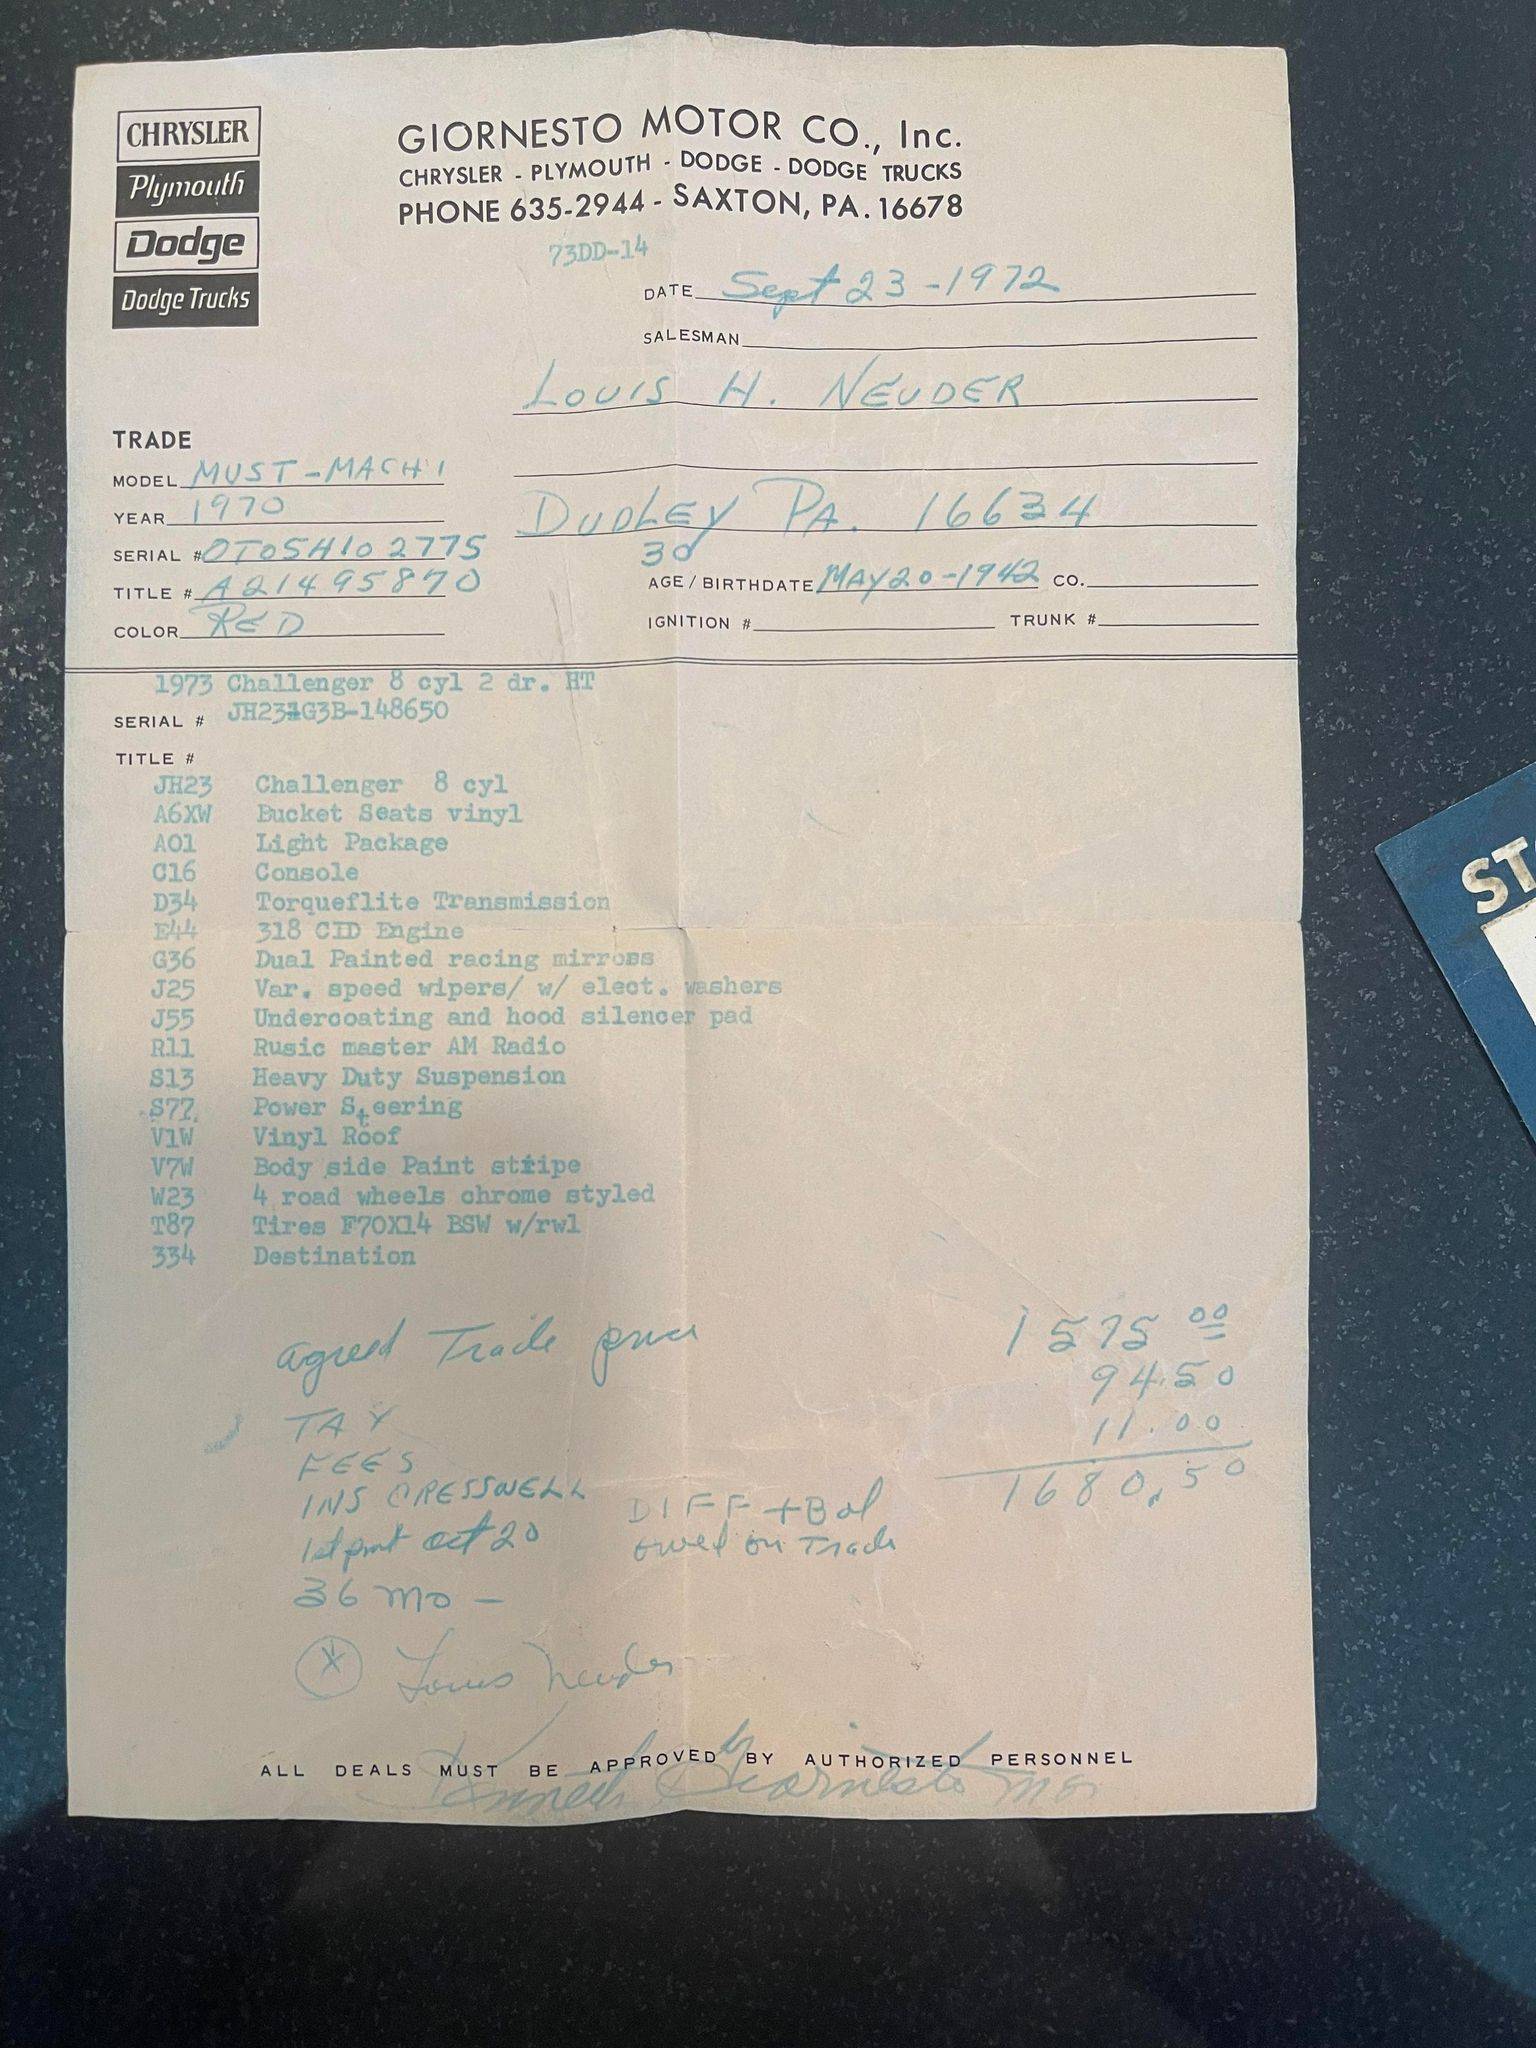 CHRYSLER
Plymouth
Dodge
Dodge Trucks
GIORNESTO MOTOR CO., Inc.
CHRYSLER - PLYMOUTH - DODGE - DODGE TRUCKS
PHONE 635-2944 - SAXTON, PA. 16678
73DD-14
DATE Sept 23-1972
SALESMAN
LOUIS H. NEUDER
TRADE
MODEL MUST-MACH 1
YEAR 1970
DUDLEY PA. 16634
SERIAL # 0T05H102775
30
TITLE # A21495870
AGE / BIRTHDATE MAY 20-1942 CO.
COLOR RED
IGNITION # TRUNK #
1973 Challenger 8 cyl 2 dr. HT
SERIAL # JH23G3B-148650
TITLE #
JH23 Challenger 8 cyl
A6XW Bucket Seats vinyl
A01 Light Package
C16 Console
D34 Torqueflite Transmission
E44 318 CID Engine
G36 Dual Painted racing mirross
J25 Var. speed wipers/ w/ elect. washers
J55 Undercoating and hood silencer pad
R11 Rusic master AM Radio
S13 Heavy Duty Suspension
S77 Power Steering
V1W Vinyl Roof
V7W Body side Paint stripe
W23 4 road wheels chrome styled
T87 Tires F70X14 BSW w/rwl
334 Destination
agreed Trade price 1575 00
TAX 94.50
FEES 11.00
INS CRESSWELL DIFF + Bal 1680.50
1st pmt Oct 20 owed on Trade
36 mo -
X Louis Neuder
ALL DEALS MUST BE APPROVED BY AUTHORIZED PERSONNEL
by
Kenneth Giornesto Mgr
ST